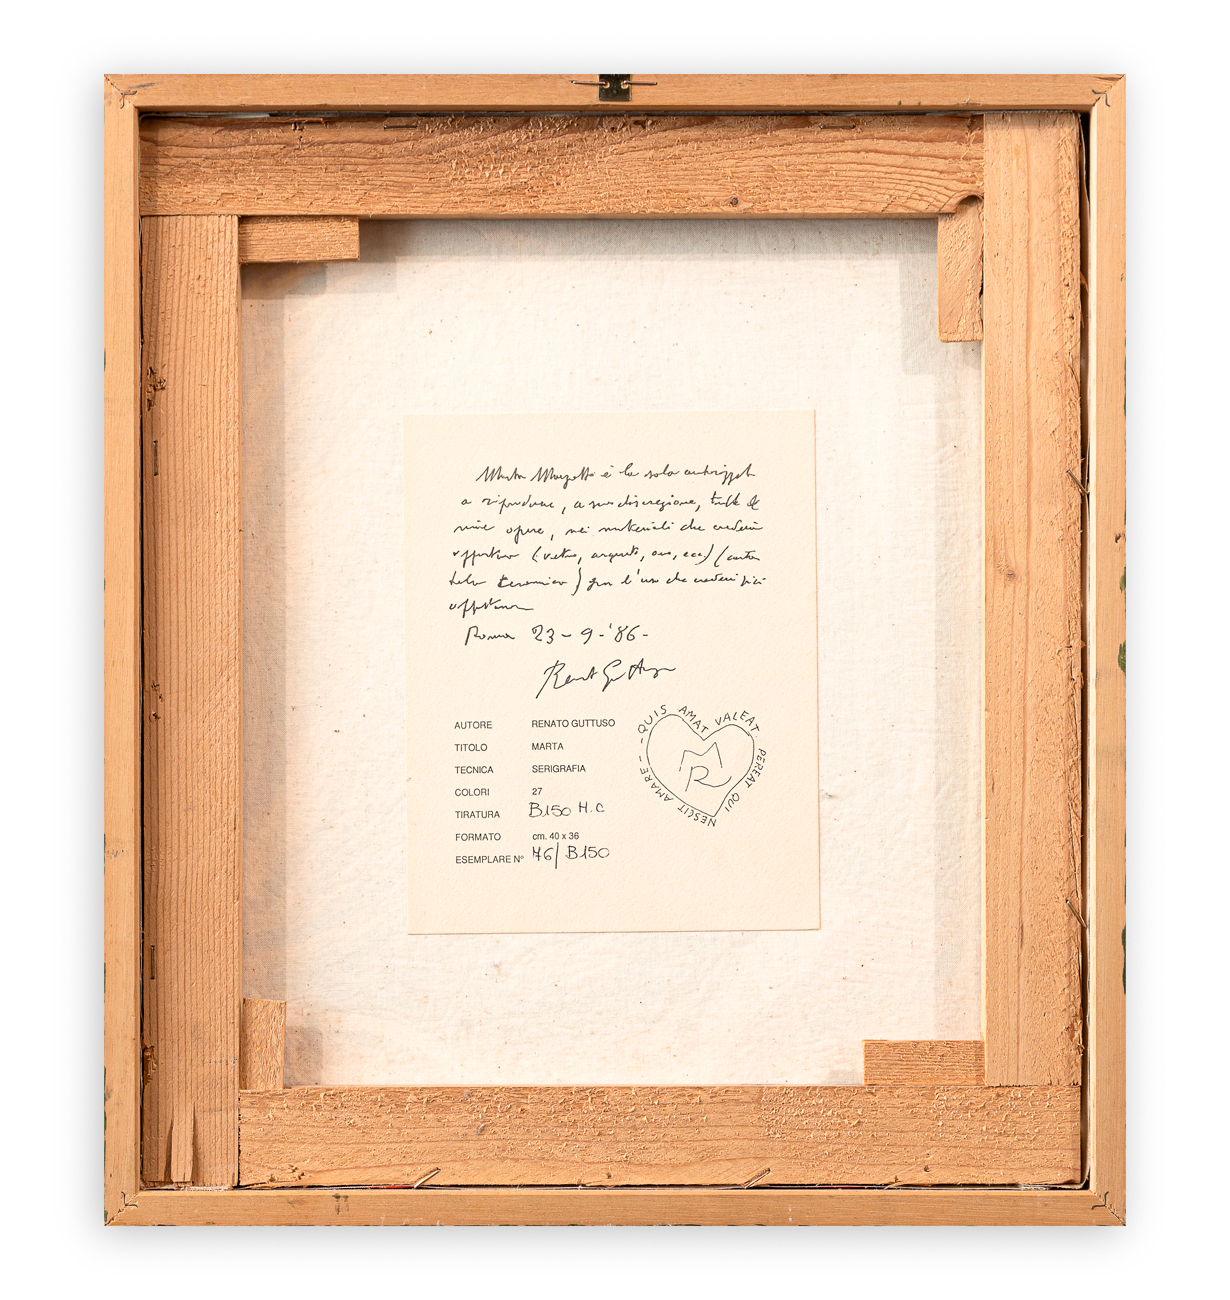 Marta Marzotto è la sola autorizzata
a riprodurre, a sua discrezione, tutte le
mie opere, nei materiali che crederà
opportuno (vetro, argento, oro, ecc) (carta
tela ceramica) per l'uso che crederà più
opportuno
Roma 23-9-'86-
Renato Guttuso
AUTORE RENATO GUTTUSO
TITOLO MARTA
TECNICA SERIGRAFIA
COLORI 27
TIRATURA B150 H.C
FORMATO cm. 40 x 36
ESEMPLARE N° 76/B150
QUIS AMAT VALEAT. PEREAT QUI NESCIT AMARE-
MR